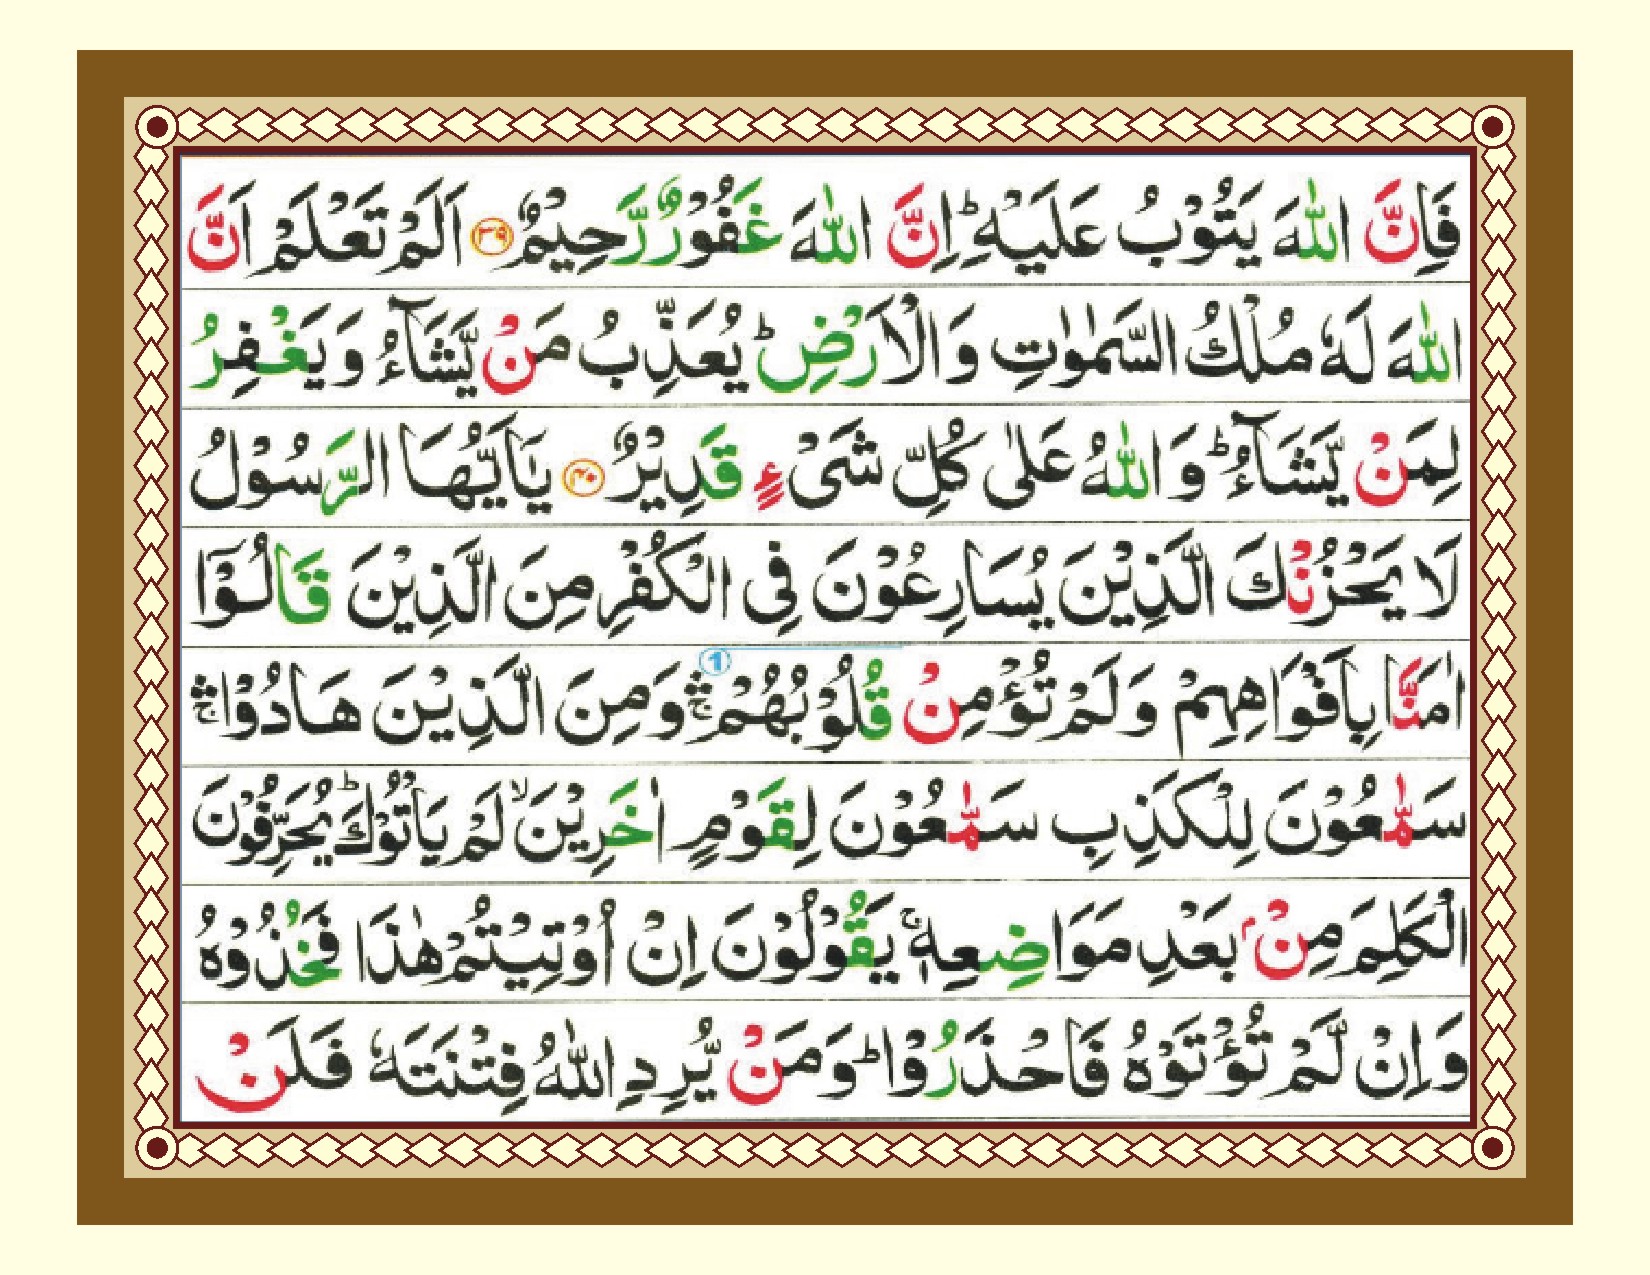 فَاِنَّ اللّٰهَ يَتُوْبُ عَلَيْهِ ؕ اِنَّ اللّٰهَ غَفُوْرٌ رَّحِيْمٌ ﴿۳۹﴾ اَلَمْ تَعْلَمْ اَنَّ
اللّٰهَ لَهٗ مُلْكُ السَّمٰوٰتِ وَالْاَرْضِ ؕ يُعَذِّبُ مَنْ يَّشَآءُ وَيَغْفِرُ
لِمَنْ يَّشَآءُ ؕ وَاللّٰهُ عَلٰى كُلِّ شَىْءٍ قَدِيْرٌ ﴿۴۰﴾ يٰۤاَيُّهَا الرَّسُوْلُ
لَا يَحْزُنْكَ الَّذِيْنَ يُسَارِعُوْنَ فِى الْكُفْرِ مِنَ الَّذِيْنَ قَالُوْۤا
اٰمَنَّا بِاَفْوَاهِهِمْ وَلَمْ تُؤْمِنْ قُلُوْبُهُمْ ۛۚ ① وَمِنَ الَّذِيْنَ هَادُوْا ۛۚ
سَمّٰعُوْنَ لِلْكَذِبِ سَمّٰعُوْنَ لِقَوْمٍ اٰخَرِيْنَ ۙ لَمْ يَاْتُوْكَ ؕ يُحَرِّفُوْنَ
الْكَلِمَ مِنْۢ بَعْدِ مَوَاضِعِهٖ ۚ يَقُوْلُوْنَ اِنْ اُوْتِيْتُمْ هٰذَا فَخُذُوْهُ
وَاِنْ لَّمْ تُؤْتَوْهُ فَاحْذَرُوْا ؕ وَمَنْ يُّرِدِ اللّٰهُ فِتْنَتَهٗ فَلَنْ